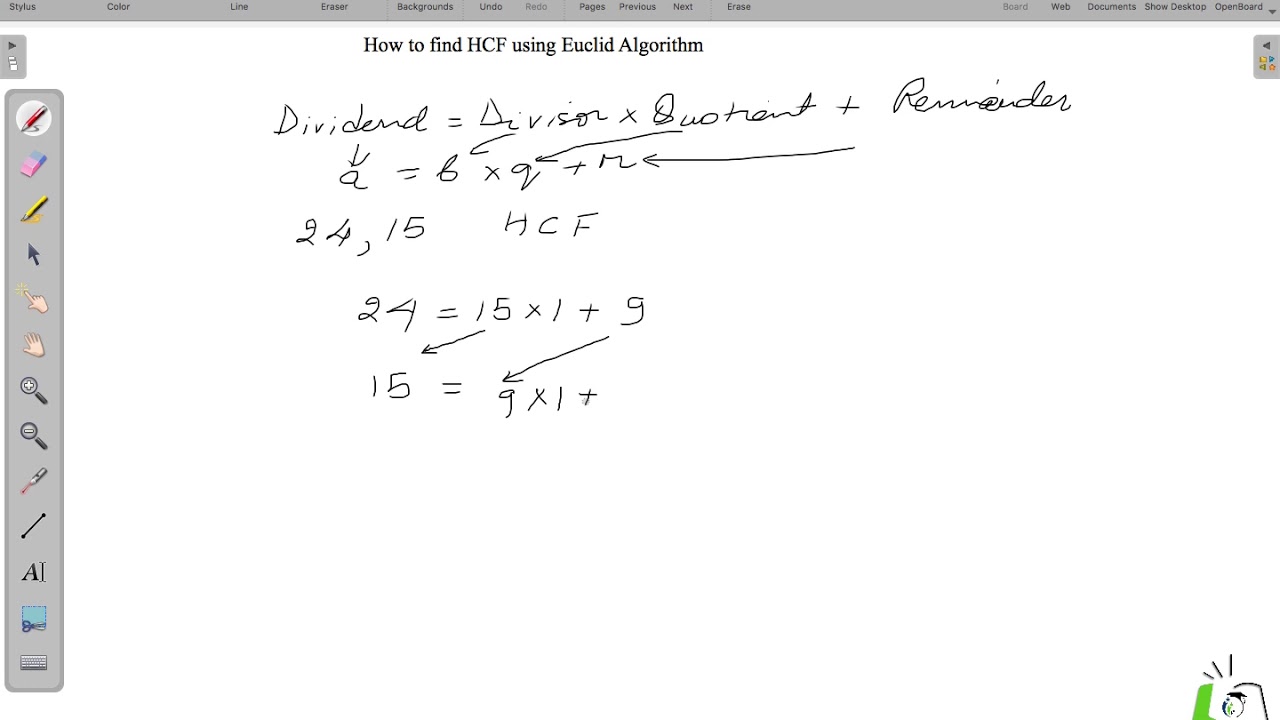 Stylus Color Line Eraser Backgrounds Undo Redo Pages Previous Next Erase Board Web Documents Show Desktop OpenBoard
How to find HCF using Euclid Algorithm
Dividend = Divisor × Quotient + Remainder
a = b × q + r
24, 15 HCF
24 = 15 × 1 + 9
15 = 9 × 1 +
AI